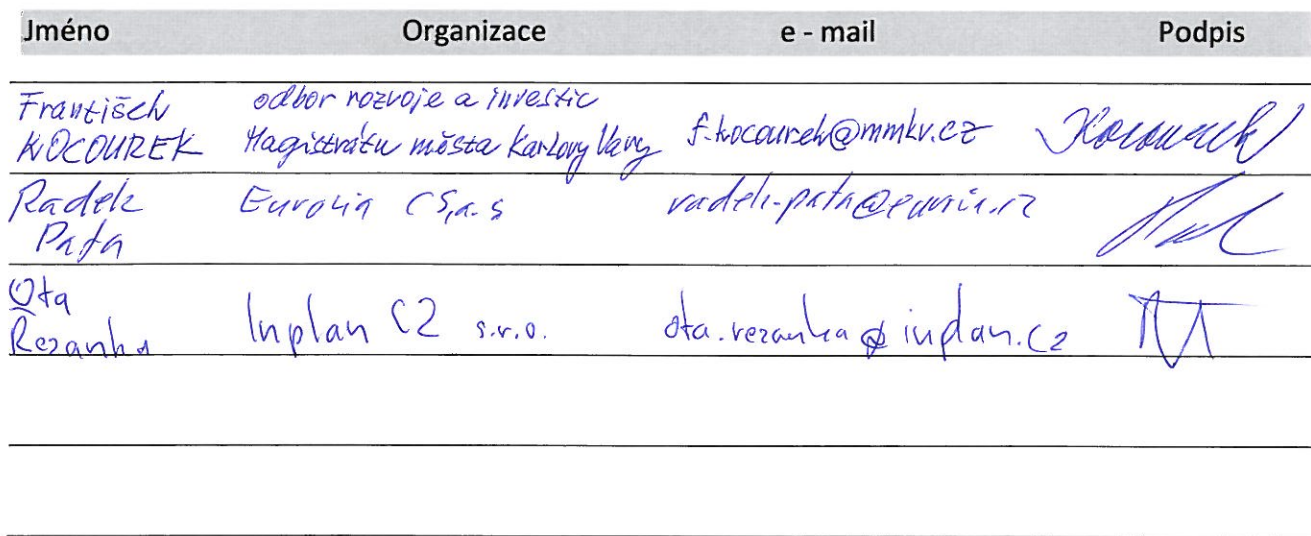 Jméno Organizace e - mail Podpis
František odbor rozvoje a investic
KOCOUREK Magistrátu města Karlovy Vary f.kocourek@mmkv.cz Kocourek
Radek Eurovia CS,a.s radek.pata@eurovia.cz
Pata
Ota
Řezanka Inplan CZ s.r.o. ota.rezanka@inplan.cz